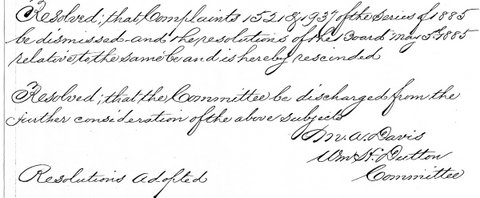 Resolved, that Complaints 1521 & 1937 of the series of 1885
be dismissed and the resolutions of the Board May 5th 1885
relative to the same be and is hereby rescinded
Resolved, that the Committee be discharged from the
further consideration of the above subjects
M. A. Davis
Wm H. Dutton
Resolutions Adopted Committee